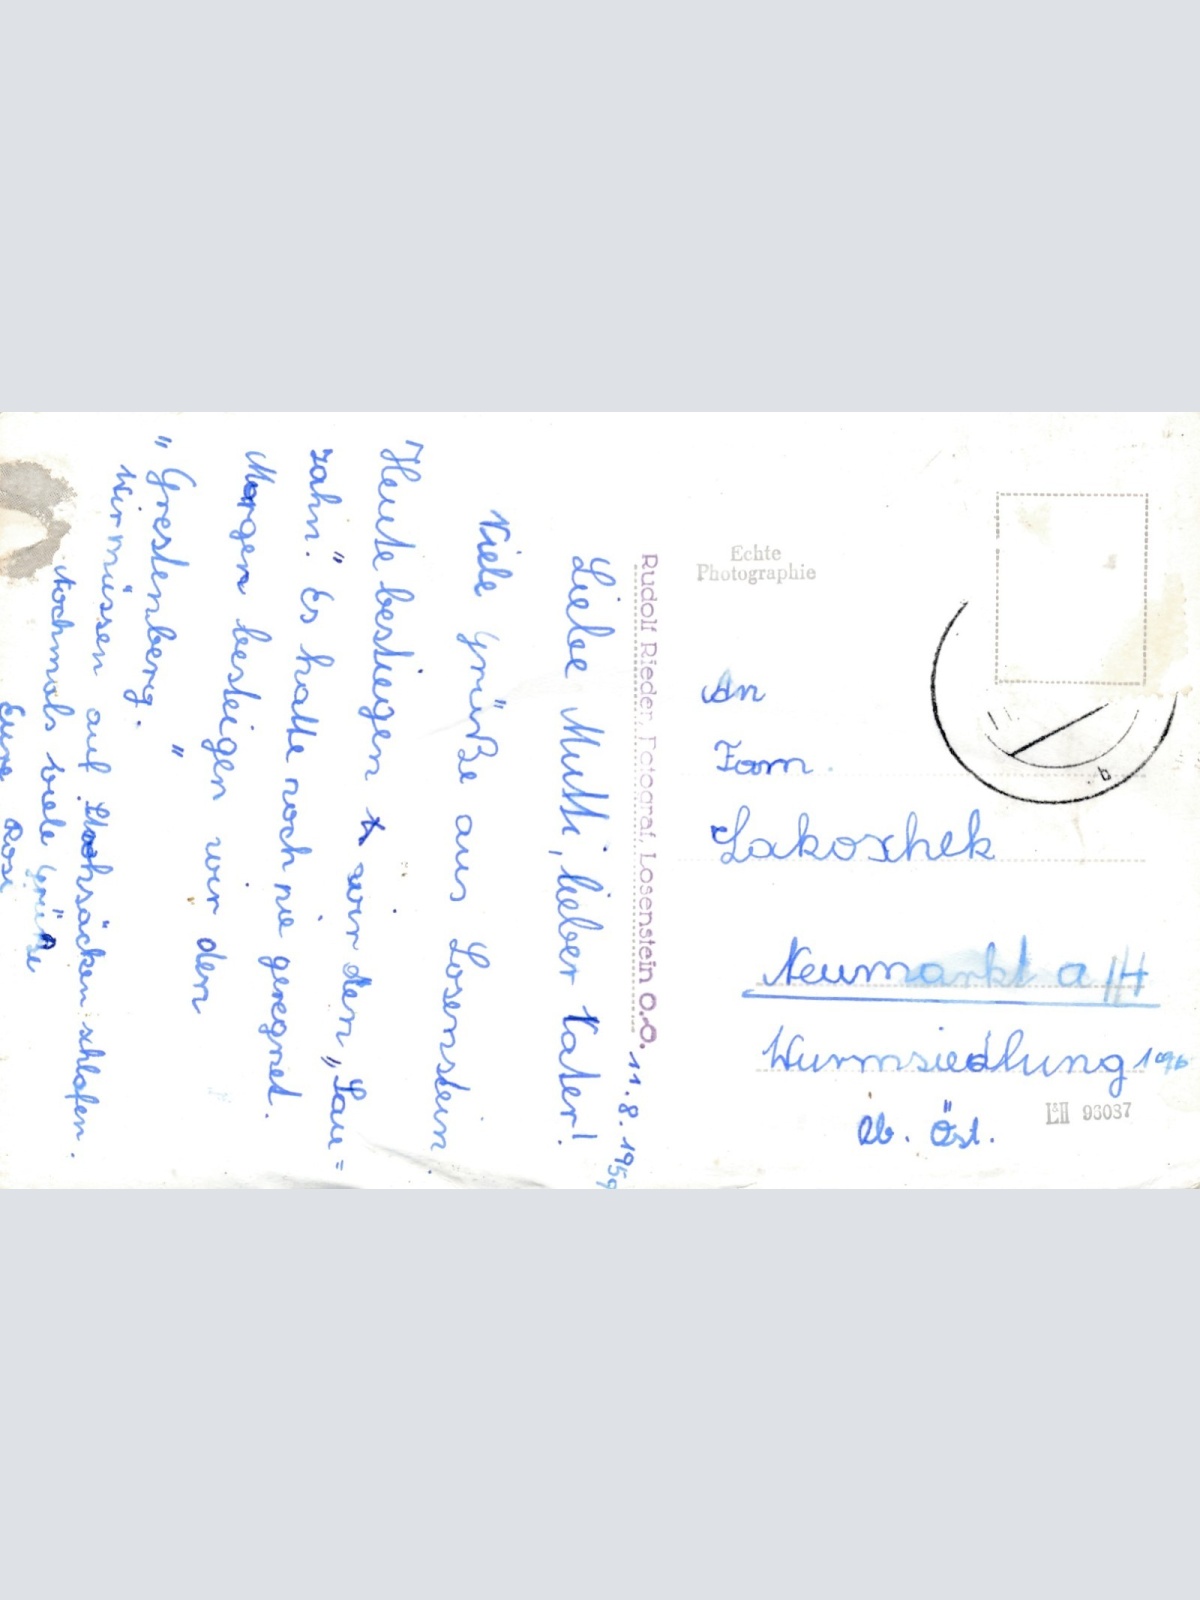 11.8.1959
Liebe Mutti, lieber Vater!
Viele Grüße aus Losenstein.
Heute bestiegen wir den „Sau=
zahn." Es hatte noch nie geregnet.
Morgen besteigen wir den
„Grestenberg."
Wir müssen auf Strohsäcken schlafen.
Nochmals viele Grüße
Eure Rosi
Rudolf Rieder, Fotograf, Losenstein O.Ö.
Echte
Photographie
An
Fam.
Lakoschek
Neumarkt a/H
Wurmsiedlung
Ob. Öst.
93087
b